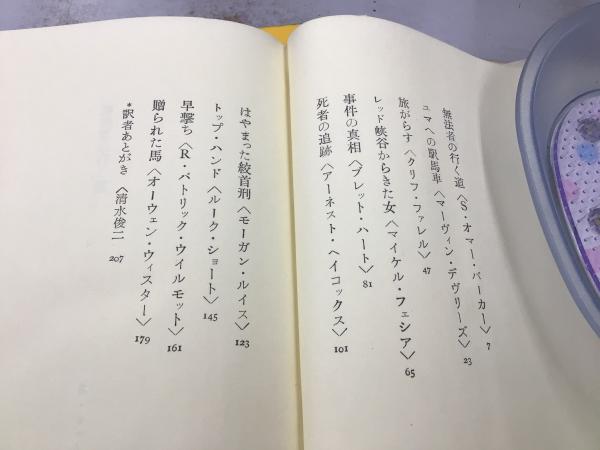 無法者の行く道〈S・オマー・バーカー〉 7
ユマへの駅馬車〈マーヴィン・デヴリーズ〉 23
旅がらす〈クリフ・ファレル〉 47
レッド峡谷からきた女〈マイケル・フェシア〉 65
事件の真相〈ブレット・ハート〉 81
死者の追跡〈アーネスト・ヘイコックス〉 101
はやまった絞首刑〈モーガン・ルイス〉 123
トップ・ハンド〈ルーク・ショート〉 145
早撃ち〈R・パトリック・ウイルモット〉 161
贈られた馬〈オーウェン・ウィスター〉 179
*訳者あとがき〈清水俊二〉 207